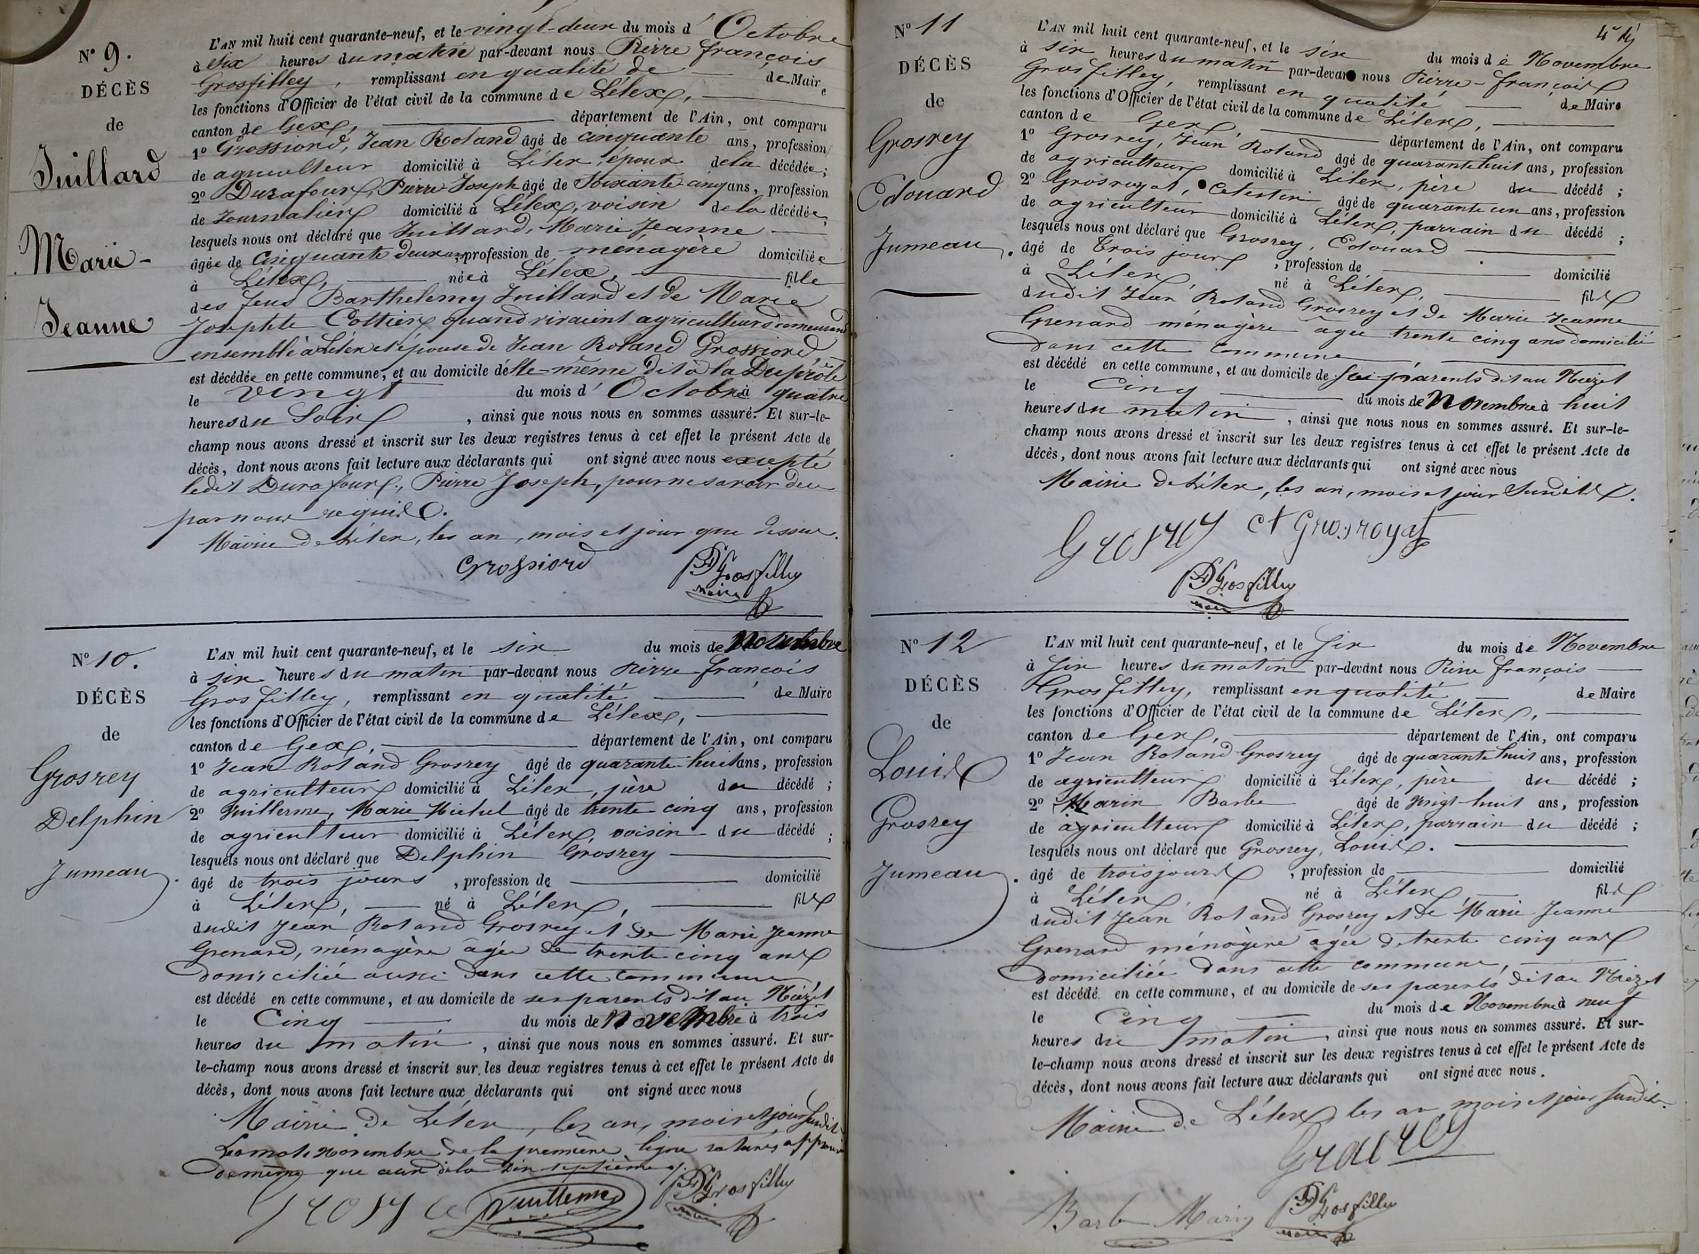 N° 9.
DÉCÈS
de
Juillard
Marie-
Jeanne
L'AN mil huit cent quarante-neuf, et le vingt-deux du mois d' Octobre
à six heures du matin par-devant nous Pierre François
Grosfilley, remplissant en qualité de de Maire
les fonctions d'Officier de l'état civil de la commune de Lélex,
canton de Gex, département de l'Ain, ont comparu
1° Grossiord, Jean Roland âgé de cinquante ans, profession
de agriculteur domicilié à Lélex, époux de la décédée ;
2° Durafour, Pierre Joseph âgé de Soixante cinq ans, profession
de Journalier domicilié à Lélex, voisin de la décédée,
lesquels nous ont déclaré que Juillard, Marie Jeanne
âgée de Cinquante deux ans profession de ménagère domiciliée
à Lélex, née à Lélex, fille
des feus Barthelemy Juillard et de Marie
Josephte Cottier, quand vivaient agriculteurs demeurand
ensemble à Lélex et épouse de Jean Roland Grossiord,
est décédée en cette commune, et au domicile d'elle-même dit à la
le vingt du mois d' Octobre à quatre
heures du Soir, ainsi que nous nous en sommes assuré. Et sur-le-
champ nous avons dressé et inscrit sur les deux registres tenus à cet effet le présent Acte de
décès, dont nous avons fait lecture aux déclarants qui ont signé avec nous excepté
ledit Durafour, Pierre Joseph, pour ne savoir de ce
par nous requis.
Mairie de Lélex, les an, mois et jour que dessus.
Grossiord PF Grosfilley
Maire
N° 10.
DÉCÈS
de
Grosrey
Delphin
Jumeau.
L'AN mil huit cent quarante-neuf, et le six du mois de Novembre
à six heures du matin par-devant nous Pierre François
Grosfilley, remplissant en qualité de Maire
les fonctions d'Officier de l'état civil de la commune de Lélex,
canton de Gex, département de l'Ain, ont comparu
1° Jean Roland Grosrey âgé de quarante huit ans, profession
de agriculteur domicilié à Lélex, père du décédé ;
2° Juillerme, Marie Michel âgé de trente cinq ans, profession
de agriculteur domicilié à Lélex, voisin du décédé ;
lesquels nous ont déclaré que Delphin Grosrey
âgé de trois jours, profession de domicilié
à Lélex, né à Lélex, fils
dudit Jean Roland Grosrey et de Marie Jeanne
Grenard, ménagère âgée de trente cinq ans
domiciliée aussi dans cette commune
est décédé en cette commune, et au domicile de ses parents dit au Niézet
le Cinq du mois de novembre à trois
heures du matin, ainsi que nous nous en sommes assuré. Et sur-
le-champ nous avons dressé et inscrit sur les deux registres tenus à cet effet le présent Acte de
décès, dont nous avons fait lecture aux déclarants qui ont signé avec nous
Mairie de Lélex, les an, mois et jour Susdits
Le mot Novembre de la première ligne raturé approuvé
de même que celui de la dix septième
Grosrey Juillerme PF Grosfilley
N° 11
DÉCÈS
de
Grosrey
Edouard
Jumeau.
L'AN mil huit cent quarante-neuf, et le six du mois de Novembre
à six heures du matin par-devant nous Pierre-François
Grosfilley, remplissant en qualité de Maire
les fonctions d'Officier de l'état civil de la commune de Lélex,
canton de Gex, département de l'Ain, ont comparu
1° Grosrey, Jean Roland âgé de quarante huit ans, profession
de agriculteur domicilié à Lélex, père du décédé ;
2° Grosroyat, Celestin âgé de quarante un ans, profession
de agriculteur domicilié à Lélex, parrain du décédé ;
lesquels nous ont déclaré que Grosrey, Edouard
âgé de Trois jours, profession de domicilié
à Lélex, né à Lélex, fils
dudit Jean Roland Grosrey et de Marie Jeanne
Grenard ménagère âgée trente cinq ans domicilié
dans cette commune
est décédé en cette commune, et au domicile de ses parents dit au Niézet
le Cinq du mois de novembre à huit
heures du matin, ainsi que nous nous en sommes assuré. Et sur-le-
champ nous avons dressé et inscrit sur les deux registres tenus à cet effet le présent Acte de
décès, dont nous avons fait lecture aux déclarants qui ont signé avec nous
Mairie de Lélex, les an, mois et jour Susdits.
Grosrey Ct Grosroyat
PF Grosfilley
Maire
N° 12
DÉCÈS
de
Louis
Grosrey
Jumeau.
L'AN mil huit cent quarante-neuf, et le six du mois de Novembre
à six heures du matin par-devant nous Pierre François
Grosfilley, remplissant en qualité de Maire
les fonctions d'Officier de l'état civil de la commune de Lélex,
canton de Gex, département de l'Ain, ont comparu
1° Jean Roland Grosrey âgé de quarante huit ans, profession
de agriculteur domicilié à Lélex, père du décédé ;
2° Marin Barbe âgé de vingt-huit ans, profession
de agriculteur domicilié à Lélex, parrain du décédé ;
lesquels nous ont déclaré que Grosrey, Louis.
âgé de trois jours, profession de domicilié
à Lélex, né à Lélex, fils
dudit Jean Roland Grosrey et de Marie Jeanne
Grenard ménagère âgée de trente cinq ans
domiciliée dans cette commune,
est décédé en cette commune, et au domicile de ses parents dit au Niézet
le Cinq du mois de Novembre à neuf
heures du matin, ainsi que nous nous en sommes assuré. Et sur-
le-champ nous avons dressé et inscrit sur les deux registres tenus à cet effet le présent Acte de
décès, dont nous avons fait lecture aux déclarants qui ont signé avec nous.
Mairie de Lélex, les an mois et jour susdits.
Grosrey
Barbe Marin PF Grosfilley
Maire